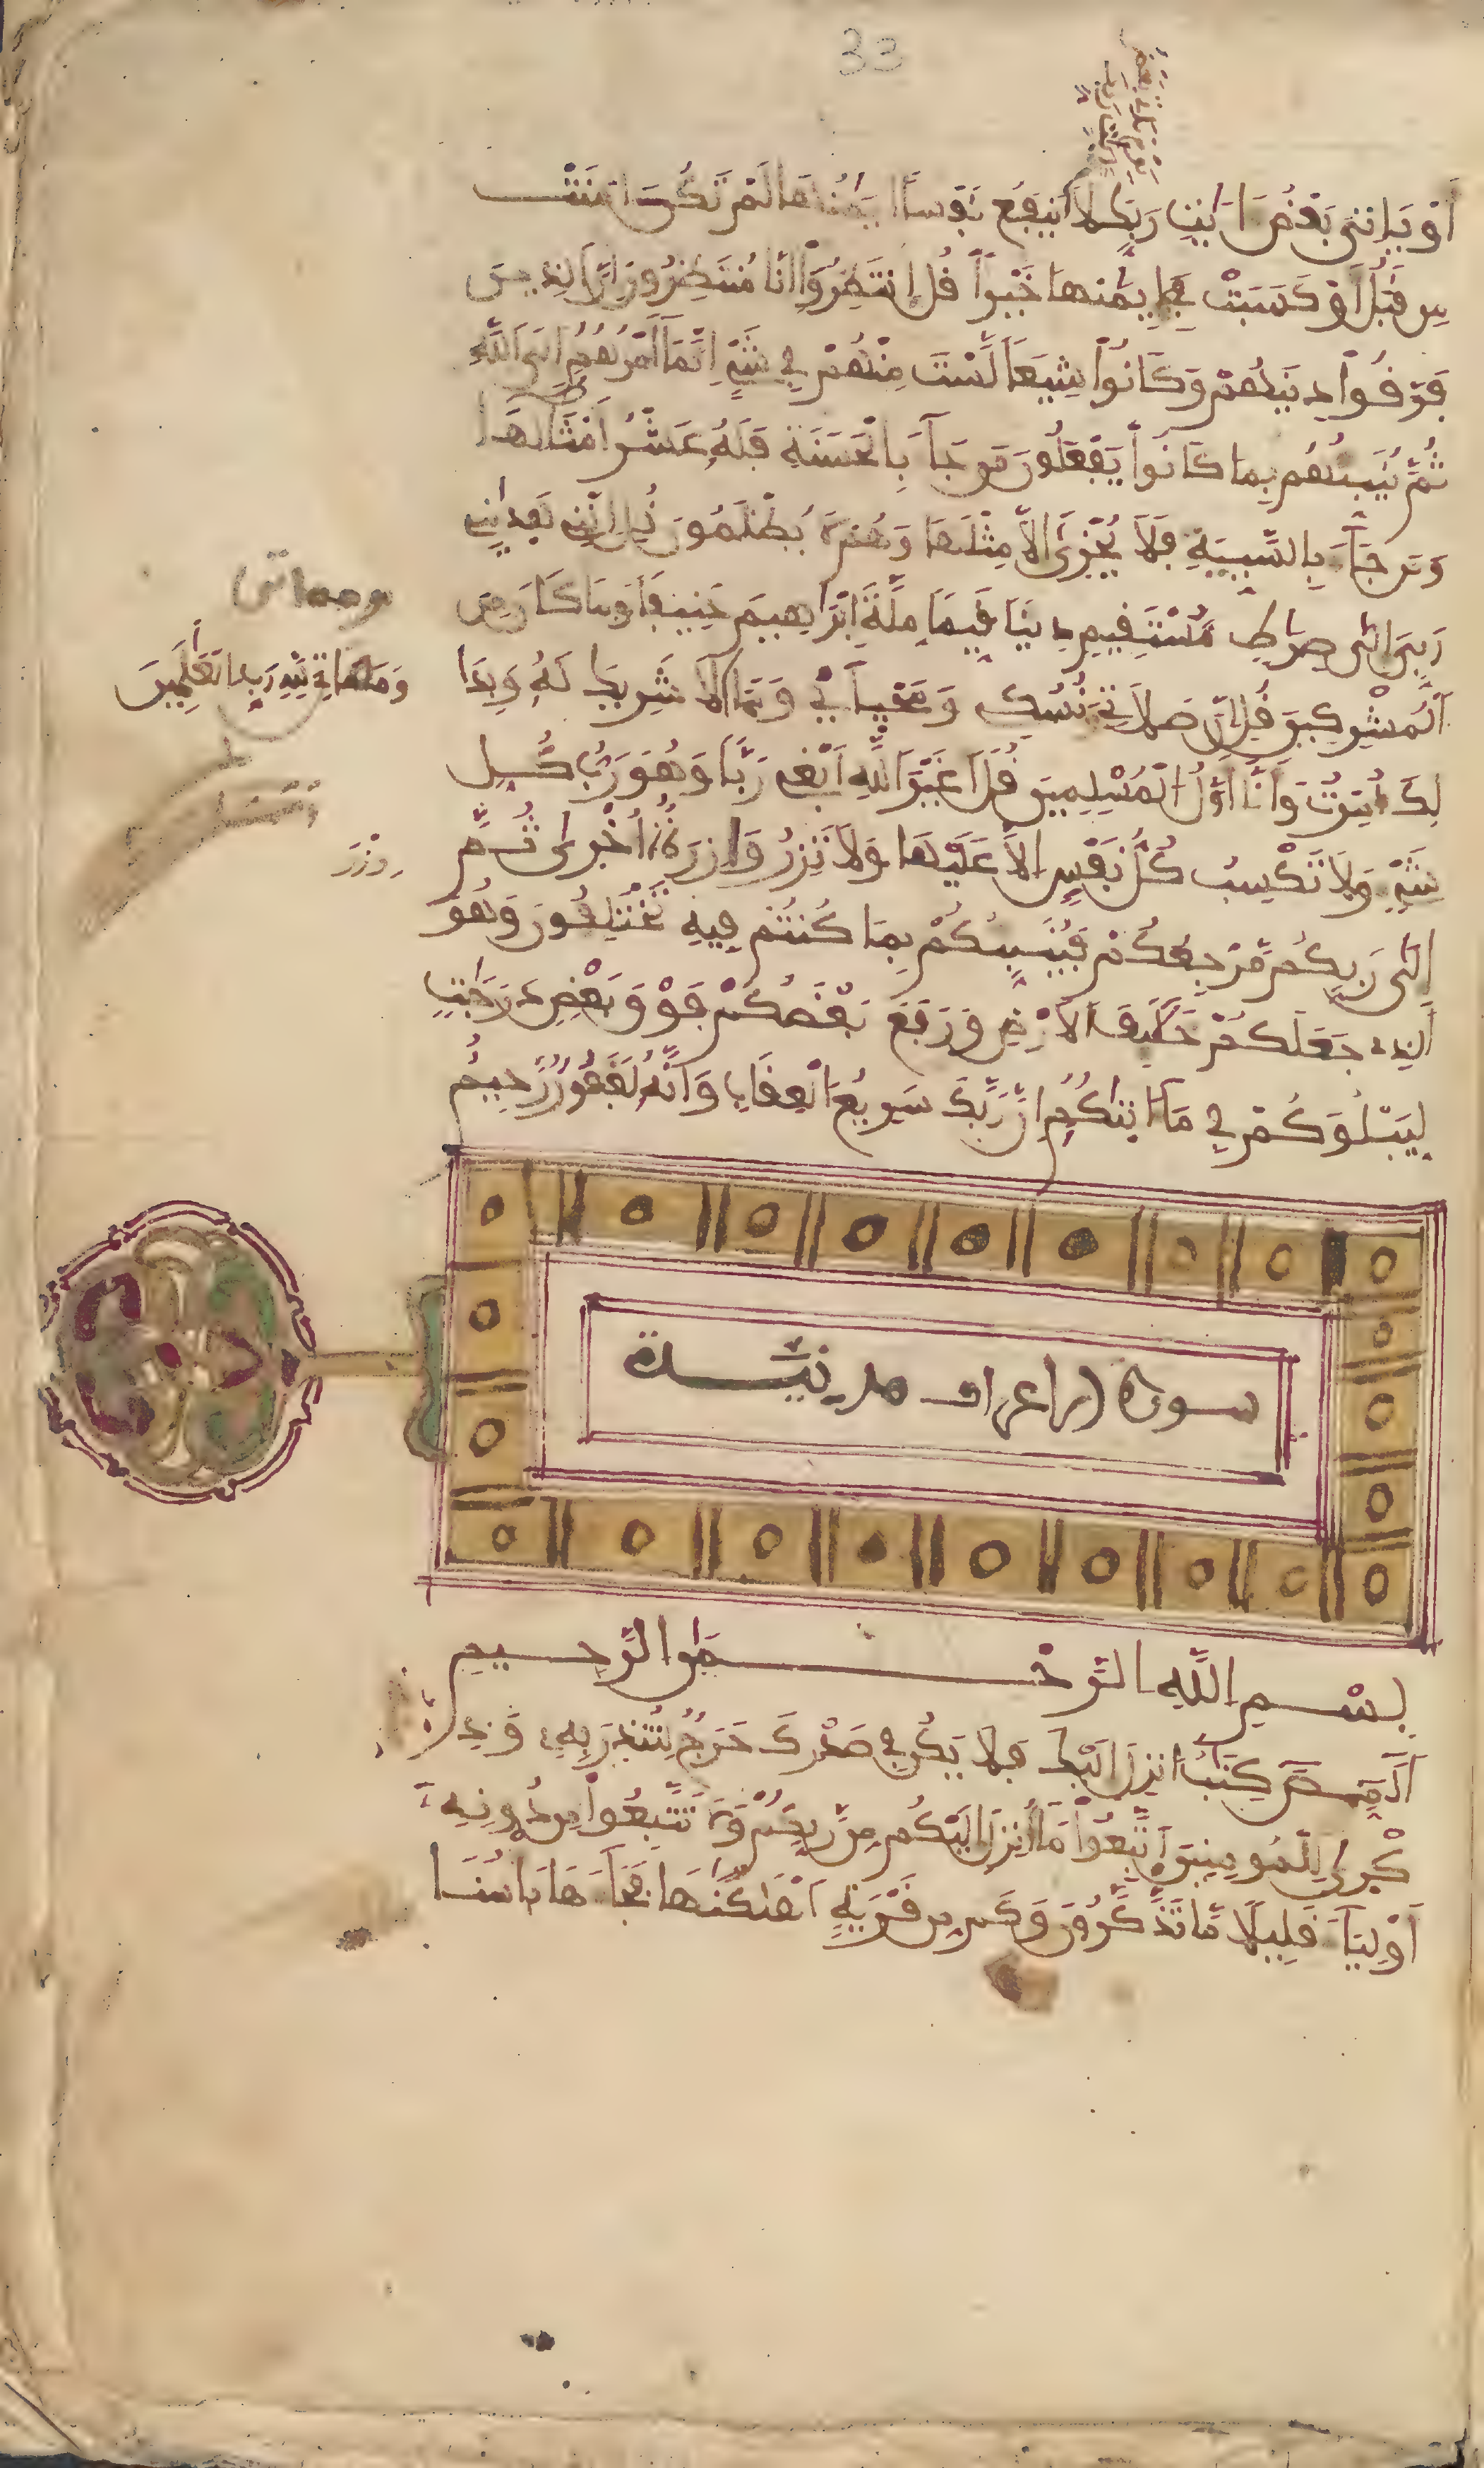 33
أَوْ يَاتِيَ بَعْضُ ءَايَٰتِ رَبِّكَ لَا يَنفَعُ نَفْساً اِيمَٰنُهَا لَمْ تَكُنَ ـامَنَتْ
مِن قَبْلُ أَوْ كَسَبَتْ فِي إِيمَٰنِهَا خَيْراً قُلِ اِنتَظِرُوٓاْ إِنَّا مُنتَظِرُونَ إِنَّ ٱلذِينَ
فَرَّقُواْ دِينَهُمْ وَكَانُواْ شِيَعاً لَّسْتَ مِنْهُمْ فِي شَيْءٍ اِنَّمَآ أَمْرُهُمُۥٓ إِلَى ٱللَّهِ
ثُمَّ يُنَبِّئُهُم بِمَا كَانُواْ يَفْعَلُونَ مَن جَآءَ بِالْحَسَنَةِ فَلَهُۥ عَشْرُ أَمْثَالِهَا
وَمَن جَآءَ بِالسَّيِّئَةِ فَلَا يُجْزَىٰٓ إِلَّا مِثْلَهَا وَهُمْ لَا يُظْلَمُونَ قُلِ اِنَّنِي هَدَٰينِي
رَبِّيَ إِلَىٰ صِرَٰطٍ مُّسْتَقِيمٍ دِيناً قَيِّماً مِّلَّةَ إِبْرَٰهِيمَ حَنِيفاً وَمَا كَانَ مِنَ
ٱلْمُشْرِكِينَ قُلِ اِنَّ صَلَاتِي وَنُسُكِي وَمَحْيَآيْ وَمَمَا لَا شَرِيكَ لَهُۥ وَبِذَا
لِكَ أُمِرْتُ وَأَنَآ أَوَّلُ ٱلْمُسْلِمِينَ قُلَ اَغَيْرَ ٱللَّهِ أَبْغِي رَبّاً وَهُوَ رَبُّ كُلِّ
شَيْءٍ وَلَا تَكْسِبُ كُلُّ نَفْسٍ اِلَّا عَلَيْهَا وَلَا تَزِرُ وَازِرَةٌ اُخْرَىٰ ثُمَّ
إِلَىٰ رَبِّكُم مَّرْجِعُكُمْ فَيُنَبِّئُكُمْ بِمَا كُنتُمْ فِيهِ تَخْتَلِفُونَ وَهُوَ
ٱلذِي جَعَلَكُمْ خَلَٰٓئِفَ ٱلَارْضِ وَرَفَعَ بَعْضَكُمْ فَوْقَ بَعْضٍ دَرَجَٰتٍ
لِّيَبْلُوَكُمْ فِي مَآ ءَاتَيٰكُمُۥٓ إِنَّ رَبَّكَ سَرِيعُ ٱلْعِقَابِ وَإِنَّهُۥ لَغَفُورٌ رَّحِيمٌ
ومماتى
وَمَمَاتِيَ لِلهِ رَبِّ اِلْعَٰلَمِينَ
وِزْرَ
سورة الاعراف مدنيّة
بِسْمِ اللَّهِ الرَّحْمَٰنِ الرَّحِيمِ
أَلَٓمِّٓصَٓ كِتَٰبٌ اُنزِلَ إِلَيْكَ فَلَا يَكُن فِي صَدْرِكَ حَرَجٌ مِّنْهُ لِتُنذِرَ بِهِۦ وَذِ
كْرَىٰ لِلْمُومِنِينَ اَتَّبِعُواْ مَآ أُنزِلَ إِلَيْكُم مِّن رَّبِّكُمْ وَلَا تَتَّبِعُواْ مِن دُونِهِۦٓ
أَوْلِيَآءَ قَلِيلًا مَّا تَذَّكَّرُونَ وَكَم مِّن قَرْيَةٍ اَهْلَكْنَٰهَا فَجَآءَهَا بَاسُنَا